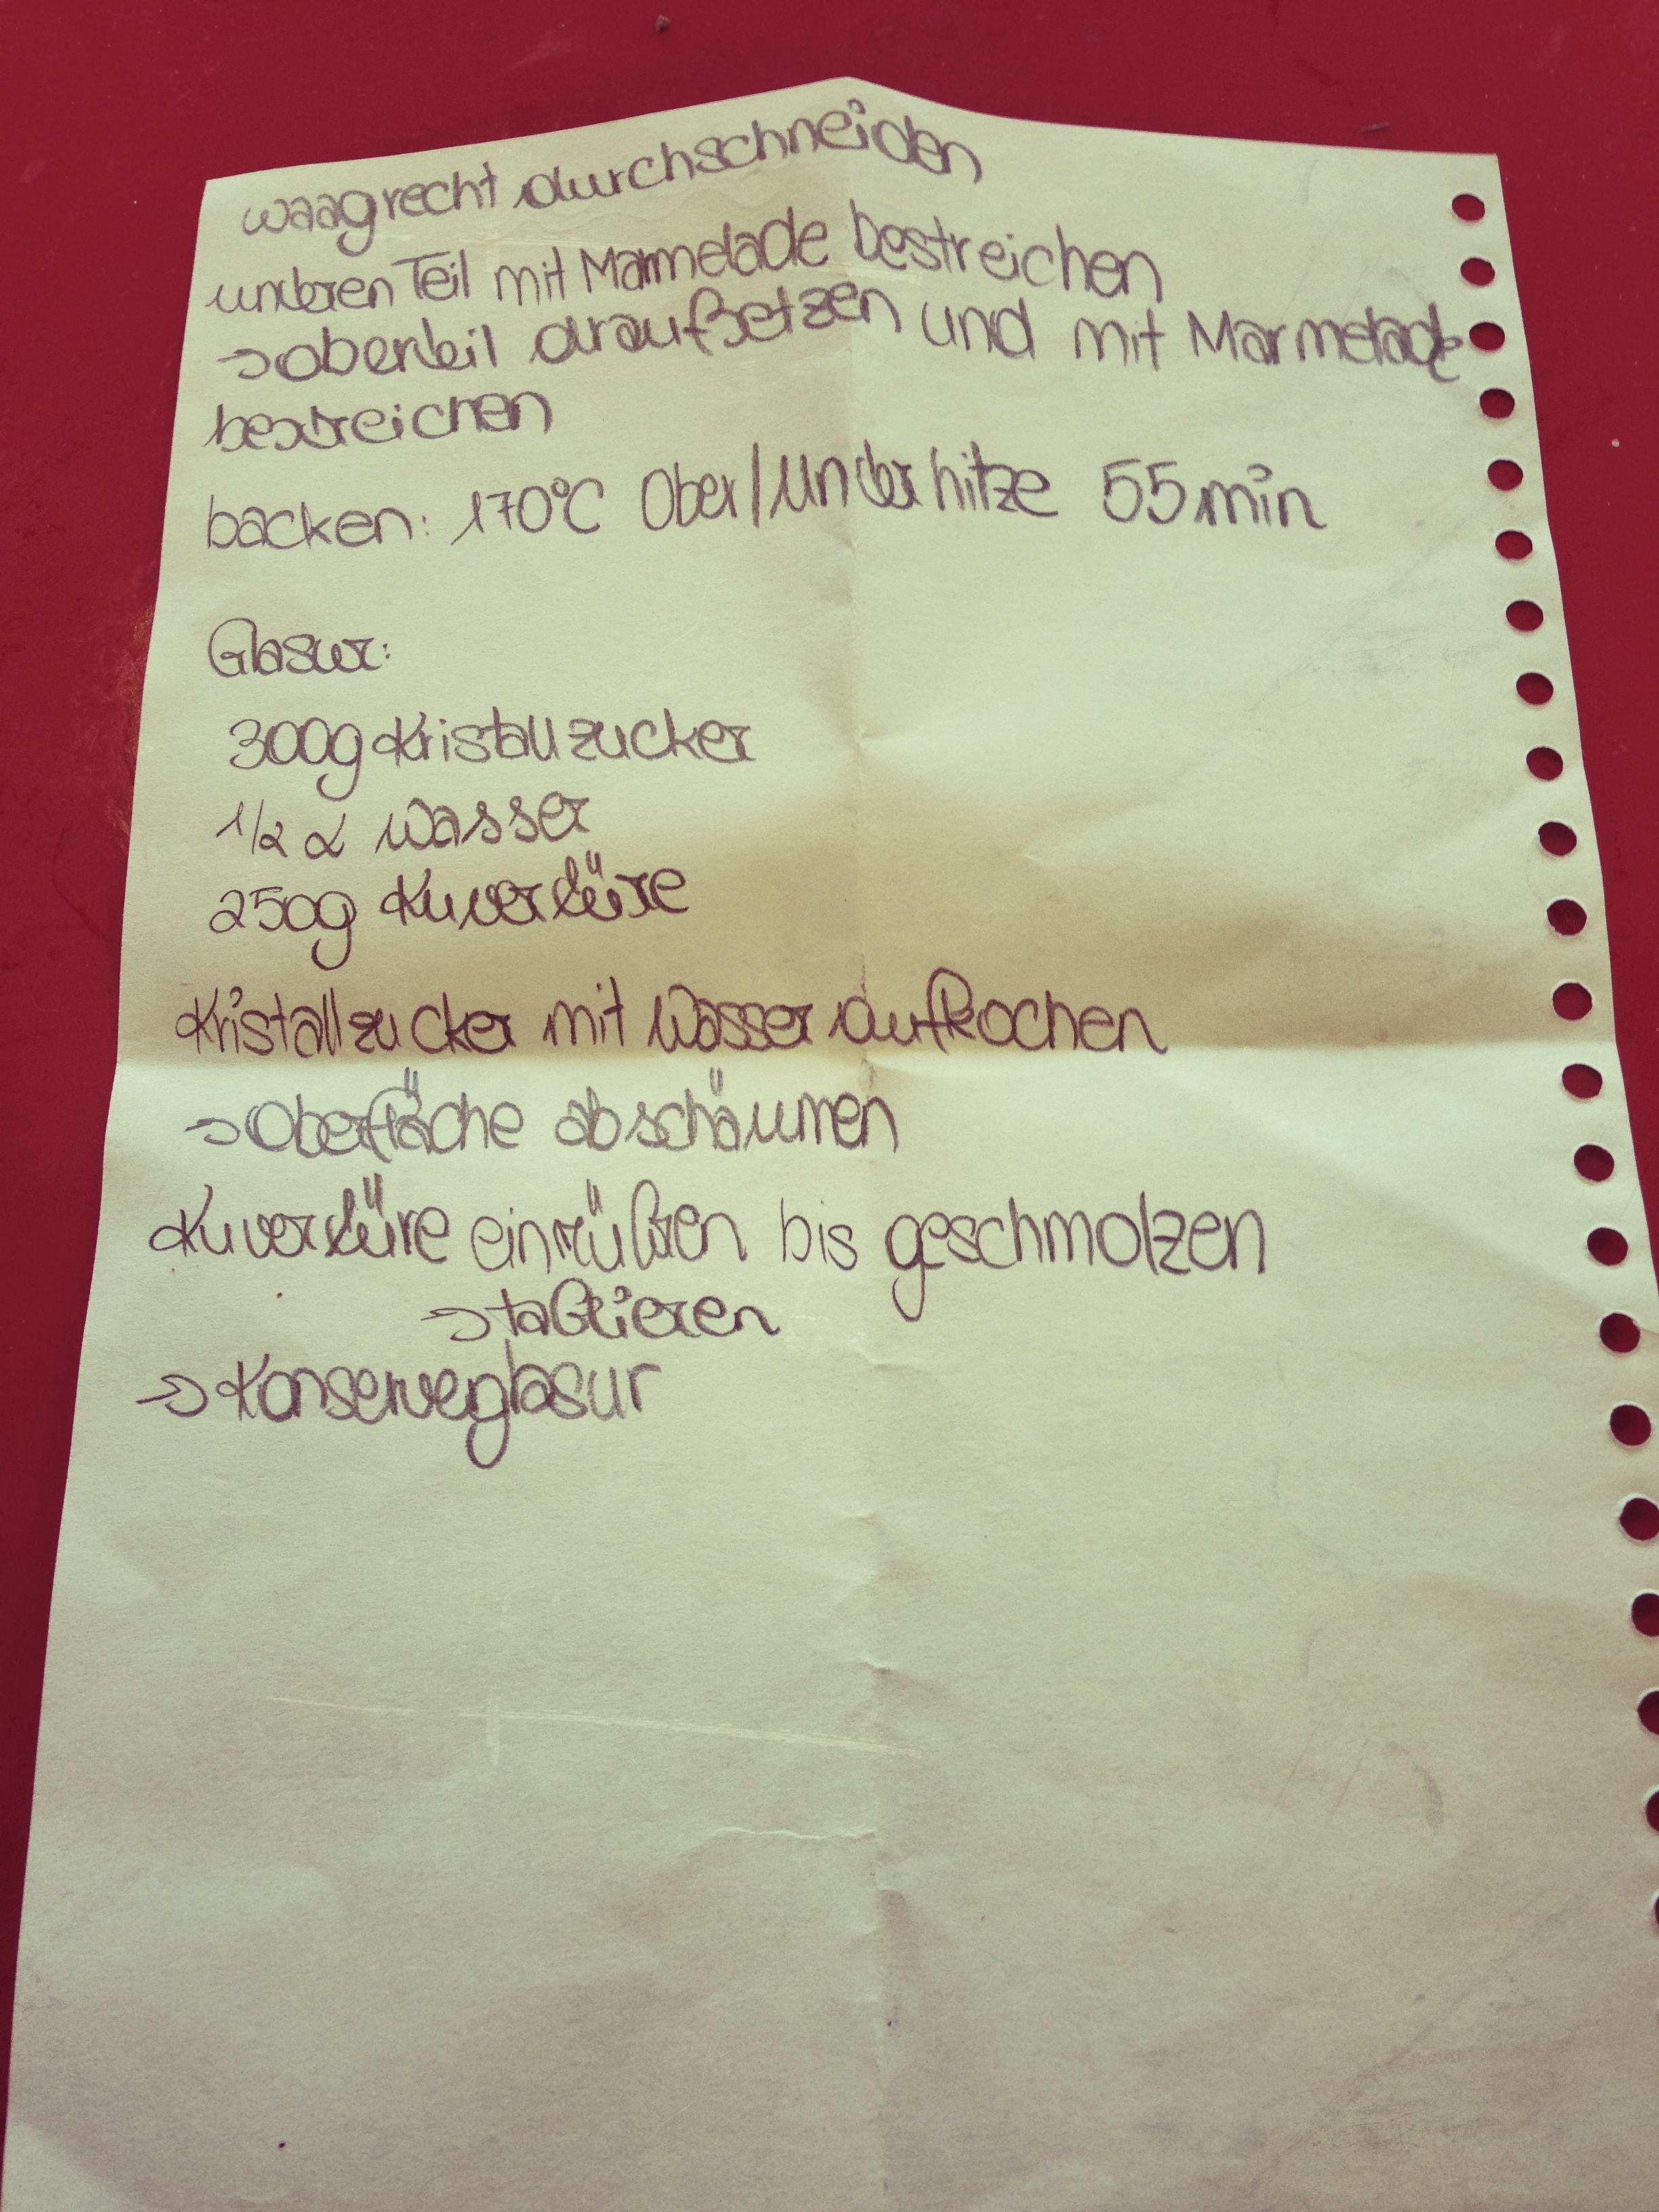 waagrecht durchschneiden
unteren Teil mit Marmelade bestreichen
→ oberteil draufsetzen und mit Marmelade
bestreichen
backen: 170°C Ober/Unterhitze 55min
Glasur:
300g Kristallzucker
1/2 L Wasser
250g Kuvertüre
Kristallzucker mit Wasser aufkochen
→ Oberfläche abschäumen
Kuvertüre einrühren bis geschmolzen
→ tablieren
→ Konserveglasur